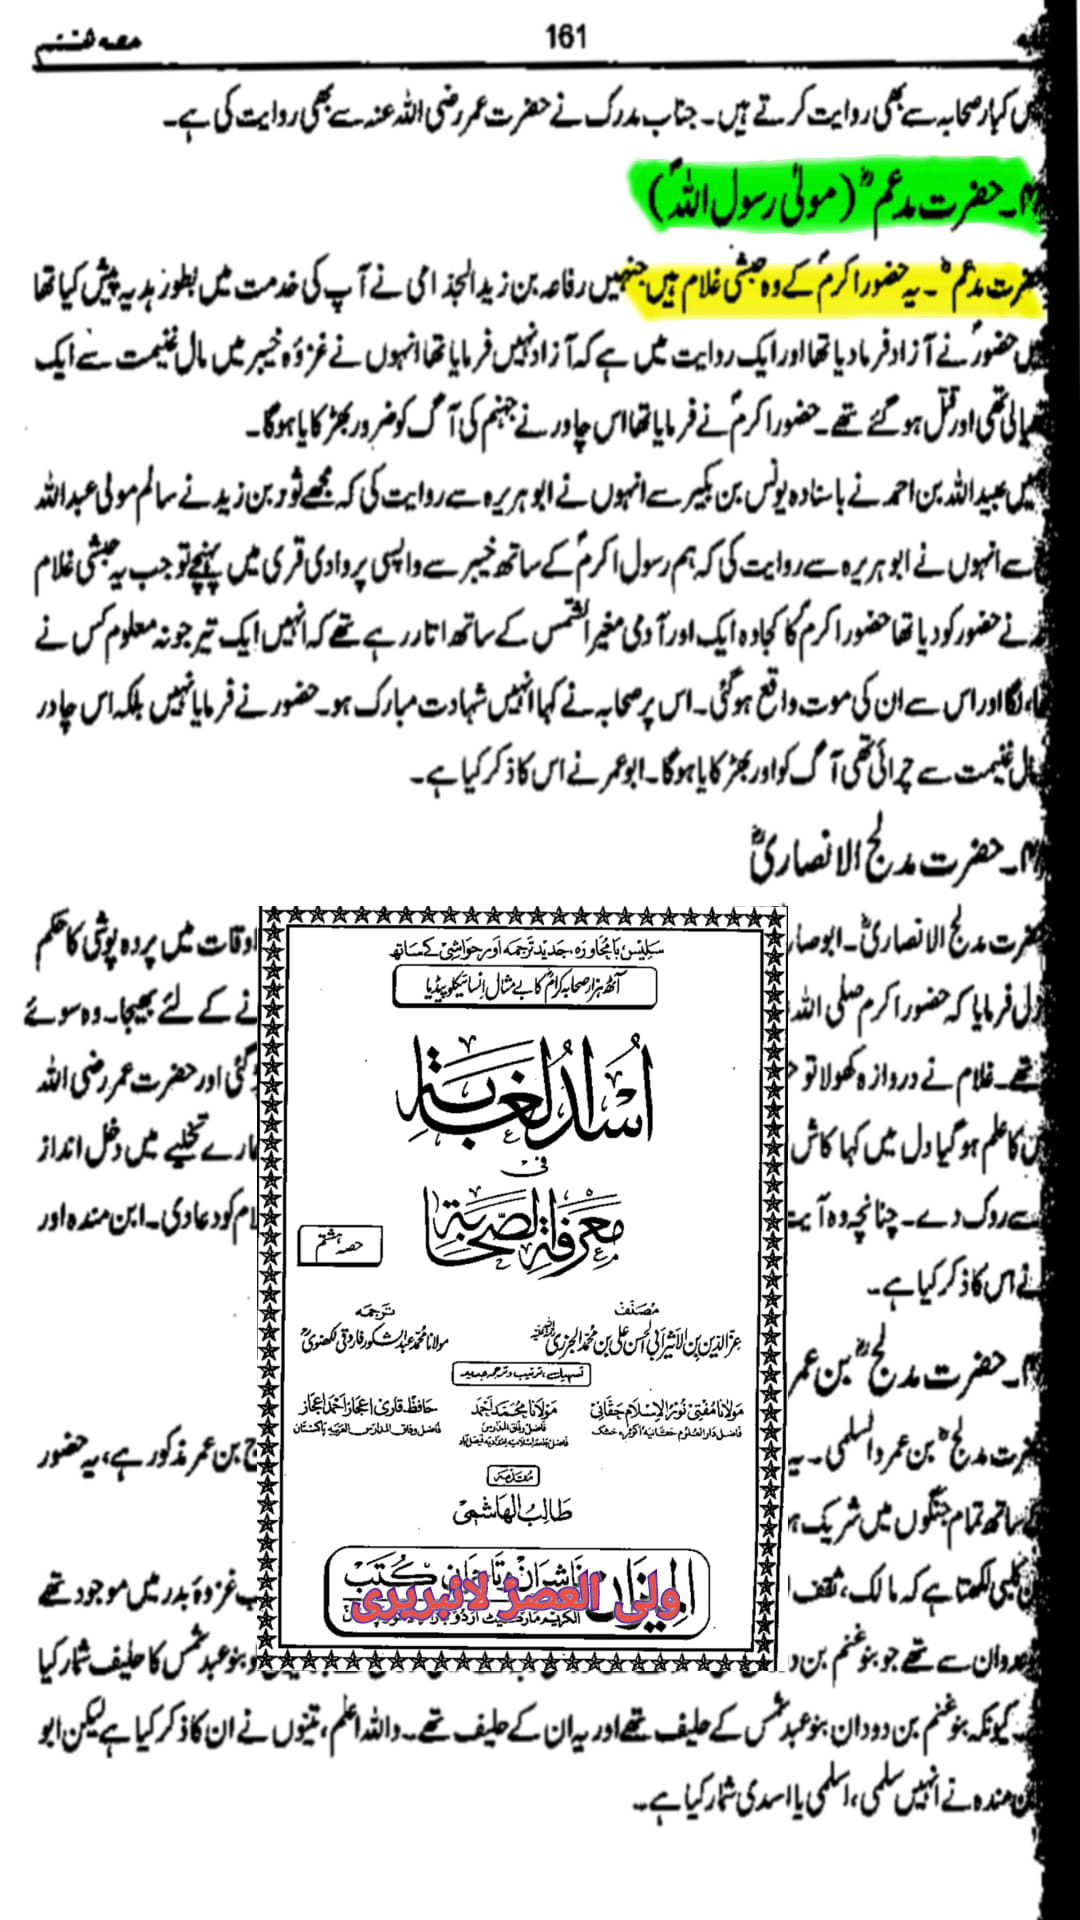 161
حصہ ہشتم
کبار صحابہ سے بھی روایت کرتے ہیں۔ جناب مدرک نے حضرت عمر رضی اللہ عنہ سے بھی روایت کی ہے۔
۔ حضرت مدعمؓ (مولیٰ رسول اللہؐ)
حضرت مدعمؓ۔ یہ حضور اکرمؐ کے وہ حبشی غلام ہیں جنہیں رفاعہ بن زید الجذامی نے آپ کی خدمت میں بطور ہدیہ پیش کیا تھا
حضورؐ نے آزاد فرما دیا تھا اور ایک روایت میں ہے کہ آزاد نہیں فرمایا تھا انہوں نے غزوہ خیبر میں مال غنیمت سے ایک
لی تھی اور قتل ہو گئے تھے۔ حضور اکرمؐ نے فرمایا تھا اس چادر نے جہنم کی آگ کو ضرور بھڑکایا ہوگا۔
عبید اللہ بن احمد نے باسنادہ یونس بن بکیر سے انہوں نے ابو ہریرہ سے روایت کی کہ مجھے ثور بن زید نے سالم مولی عبد اللہ
سے انہوں نے ابو ہریرہ سے روایت کی کہ ہم رسول اکرمؐ کے ساتھ خیبر سے واپسی پر وادی قری میں پہنچے تو جب یہ حبشی غلام
نے حضور کو دیا تھا حضور اکرمؐ کا کجاوہ ایک اور آدمی مغیر الشمس کے ساتھ اتار رہے تھے کہ انہیں ایک تیر جو نہ معلوم کس نے
لگا اور اس سے ان کی موت واقع ہو گئی۔ اس پر صحابہ نے کہا انہیں شہادت مبارک ہو۔ حضور نے فرمایا نہیں بلکہ اس چادر
مال غنیمت سے چرائی تھی آگ کو اور بھڑکایا ہوگا۔ ابو عمر نے اس کا ذکر کیا ہے۔
۔ حضرت مدلج الانصاریؓ
حضرت مدلج الانصاریؓ۔ ابو صا
اوقات میں پردہ پوشی کا حکم
فرمایا کہ حضور اکرم صلی اللہ
نے کے لئے بھیجا۔ وہ سوئے
تھے۔ غلام نے دروازہ کھولا تو
گئی اور حضرت عمر رضی اللہ
کا علم ہو گیا دل میں کہا کاش
تخلیے میں دخل انداز
سے روک دے۔ چنانچہ وہ آیت
کو دعا دی۔ ابن مندہ اور
نے اس کا ذکر کیا ہے۔
۔ حضرت مدلجؓ بن عمر
حضرت مدلجؓ بن عمرو السلمی۔ یہ
بن عمر مذکور ہے، یہ حضور
ساتھ تمام جنگوں میں شریک
کلبی لکھتا ہے کہ مالک، ثقف
غزوۂ بدر میں موجود تھے
سے تھے جو بنو غنم بن
بنو عبد شمس کا حلیف شمار کیا
کیونکہ بنو غنم بن دودان بنو عبد شمس کے حلیف تھے اور یہ ان کے حلیف تھے۔ واللہ اعلم، تینوں نے ان کا ذکر کیا ہے لیکن ابو
مندہ نے انہیں سلمی، اسلمی یا اسدی شمار کیا ہے۔
سلیس با محاورہ، جدید ترجمہ اور حواشی کے ساتھ
آٹھ ہزار صحابہ کرامؓ کا بے مثال انسائیکلوپیڈیا
اُسدُ الغَابَۃ
فی
مَعرِفَۃِ الصَّحَابَۃ
حصہ ہشتم
مصنف
عزّ الدین بن الاثیر ابی الحسن علی بن محمد الجزری
ترجمہ
مولانا محمد عبدالشکور فاروقی لکھنوی
تسہیل، ترتیب و ترجمہ جدید
مولانا مفتی نور الاسلام حقانی
فاضل دارالعلوم حقانیہ اکوڑہ خٹک
مولانا محمد احمد
فاضل وفاق المدارس
حافظ قاری اعجاز احمد اعجاز
فاضل وفاق المدارس العربیہ پاکستان
مقدمہ
طالب الہاشمی
المیزان ناشران و تاجران کتب
الکریم مارکیٹ اردو بازار
ولی العصرؑ لائبریری